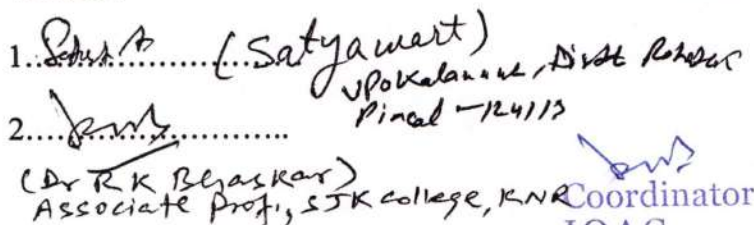 1.............(Satyawart)
VPO Kalanaur, Distt Rohtak
Pincod - 124113
2.............
(Dr RK Bhaskar)
Associate Prof., SJK college, KNR
Coordinator
IQAC